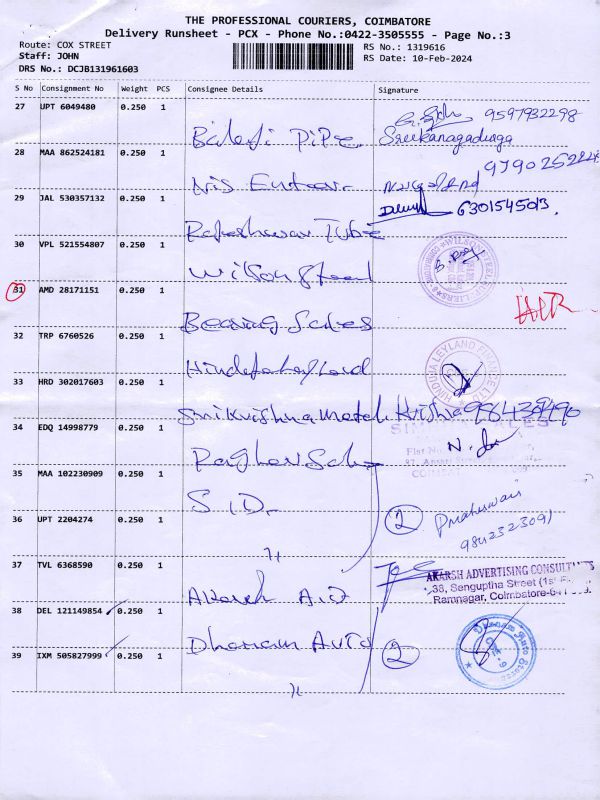 THE PROFESSIONAL COURIERS, COIMBATORE
Delivery Runsheet - PCX - Phone No.:0422-3505555 - Page No.:3
Route: COX STREET
Staff: JOHN
DRS No.: DCJB131961603
RS No.: 1319616
RS Date: 10-Feb-2024
S No Consignment No Weight PCS Consignee Details Signature
27 UPT 6049480 0.250 1 Balaji Pipe 9597932298
Sreekanagadurga
28 MAA 862524181 0.250 1
29 JAL 530357132 0.250 1 Rajeshwari Tube 6301545013.
30 VPL 521554807 0.250 1 Wilson Steel
31 AMD 28171151 0.250 1 Bearing Sales
32 TRP 6760526 0.250 1
HINDUJA LEYLAND FINANCE
33 HRD 302017603 0.250 1 Srikrishna Metal Krishna
34 EDQ 14998779 0.250 1 Raghav Sales
35 MAA 102230909 0.250 1 S ID
36 UPT 2204274 0.250 1 2 P maheswari
9842323091
37 TVL 6368590 0.250 1 Akarsh Ad
AKARSH ADVERTISING CONSULTANTS
38, Senguptha Street (1st
Ramnagar, Coimbatore-641
38 DEL 121149854 0.250 1 Dhanam Auto 2
Dhanam Auto Stores
39 IXM 505827999 0.250 1